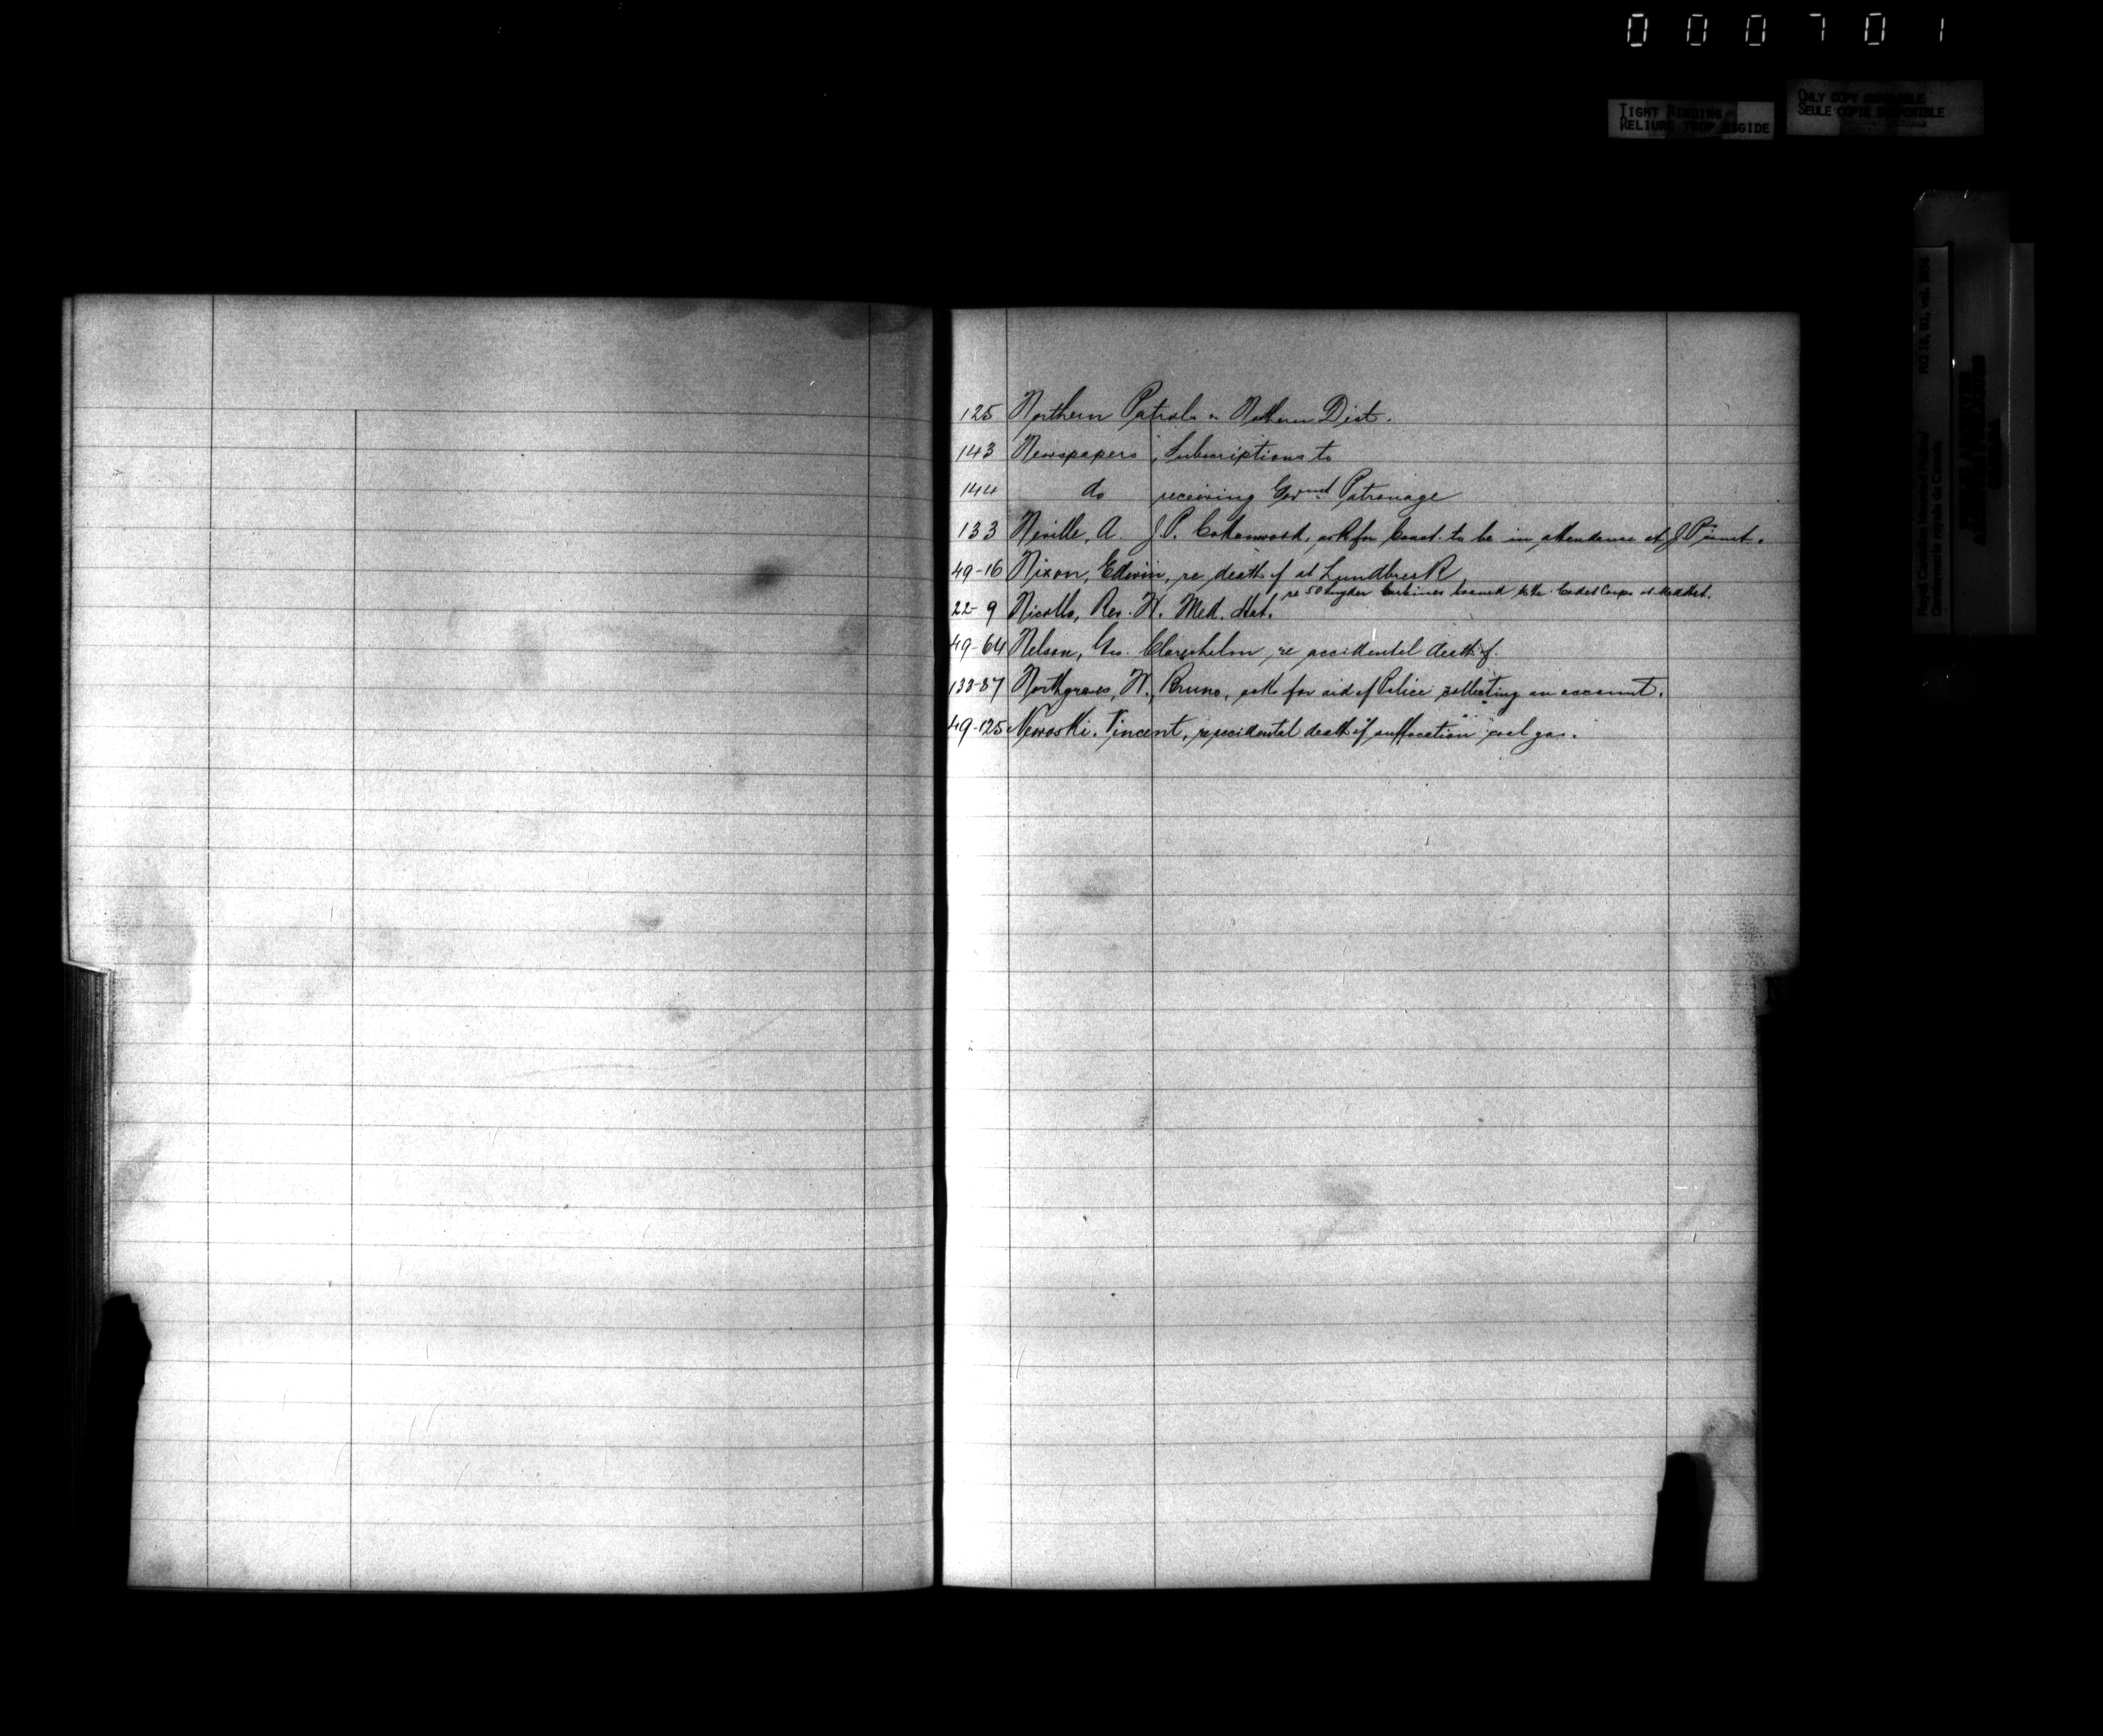 000701
TIGHT BINDING
RELIURE TROP RIGIDE
ONLY COPY AVAILABLE
SEULE COPIE DISPONIBLE
Royal Canadian Mounted Police/ RG 18, B1, vol.
Gendarmerie royale du Canada
125 Northern Patrols Northern Dist.
143 Newspapers, Subscriptions to
144 do receiving Govmnt Patronage
133 Neville, A. J.P. Cottonwood, ask for Const. to be in attendance at
49-16 Nixon, Edwin, re death of at Lundbreck,
re 50 Snyder Carbines loaned to the Cadet Corps at Med Hat.
22-9 Nicolls, Rev. W. Med. Hat.
49-64 Nelson, Geo. Claresholm re accidental death of.
133-87 Northgraves, W., Bruno, asks for aid of Police collecting an account.
49-125 Vincent, re accidental death of suffocation coal gas.
N